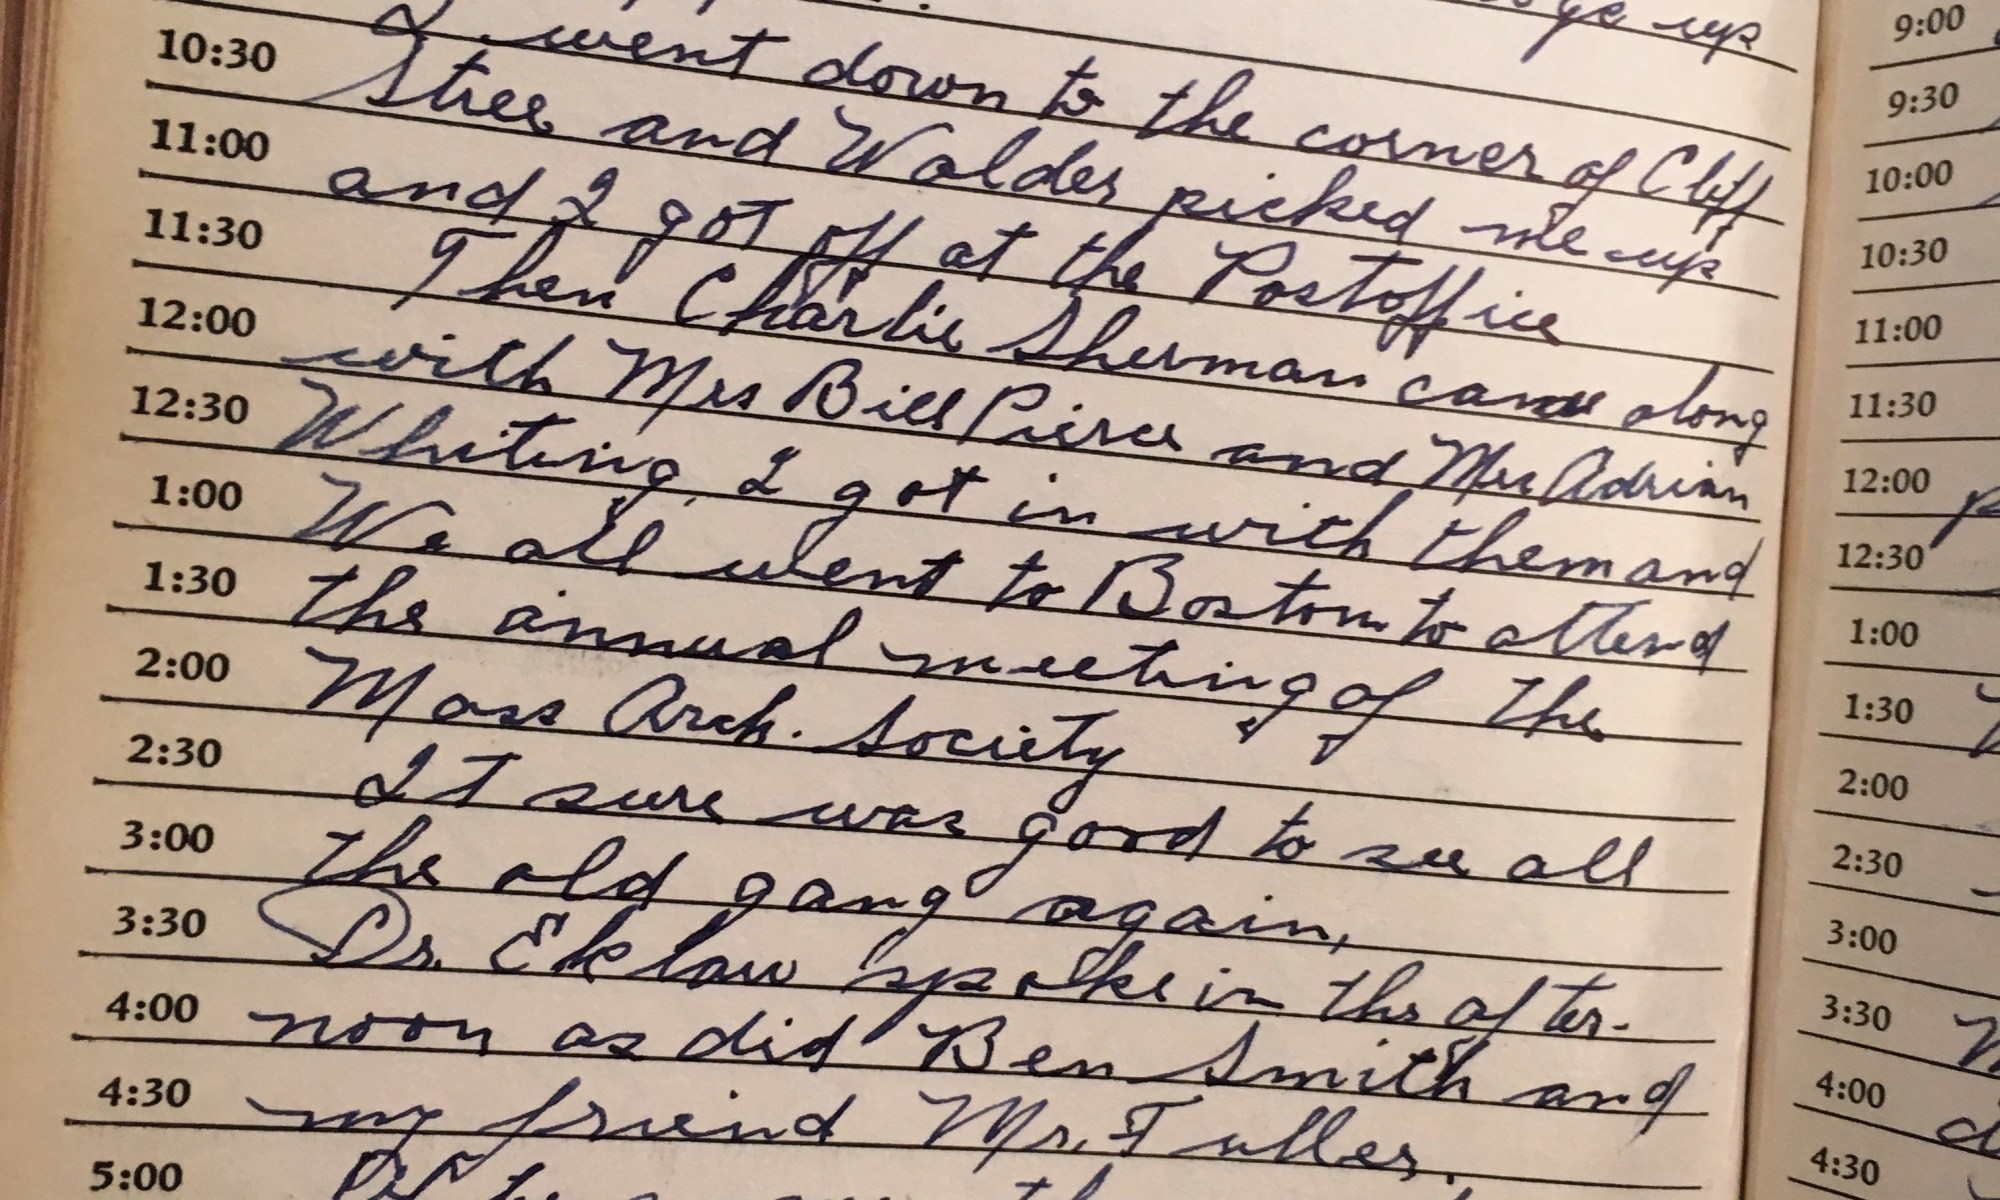 up
10:30 I went down to the corner of Cliff
11:00 Stree and Walder picked me up
11:30 and I got off at the Postoffice
12:00 Then Charlie Sherman came along
12:30 with Mrs Bill Pierce and Mrs Adrian
1:00 Whiting, I got in with them and
1:30 We all went to Boston to attend
2:00 the annual meeting of the
2:30 Mass Arch. Society
3:00 It sure was good to see all
3:30 the old gang again,
4:00 Dr. Eklaw spoke in the after-
4:30 noon as did Ben Smith and
5:00 my friend Mr. Fuller.
9:00
9:30
10:00
10:30
11:00
11:30
12:00
12:30
1:00
1:30
2:00
2:30
3:00
3:30
4:00
4:30